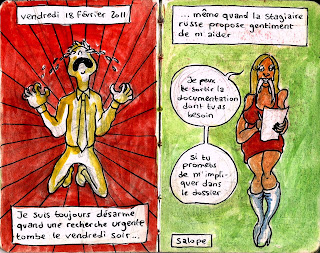 vendredi 18 février 2011
Je suis toujours désarmé
quand une recherche urgente
tombe le vendredi soir...
... même quand la stagiaire
russe propose gentiment
de m'aider
Je peux
te sortir la
documentation
dont tu as
besoin
Si tu
promets
de m'impli-
quer dans
le dossier
Salope